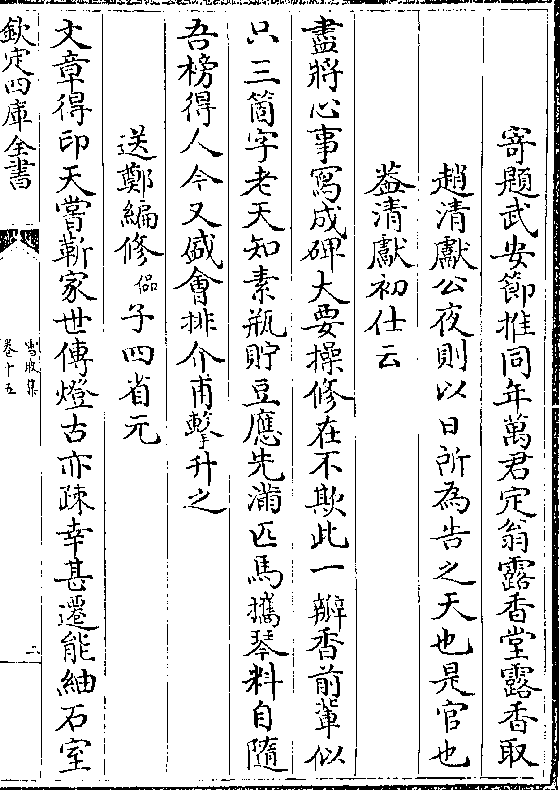 寄題武安節推同年萬君定翁露香堂露香取
趙清獻公夜則以日所為告之天也是官也
葢清獻初仕云
盡將心事寫成碑大要操修在不欺此一瓣香前輩似
只三箇字老天知素瓶貯豆應先滿匹馬攜琴料自隨
吾榜得人今又盛會排介甫擊升之
送鄭編修 子四省元
文章得印天嘗靳家世傳燈古亦疎幸甚遷能紬石室
欽定四庫全書
雪坡集
卷十五
二